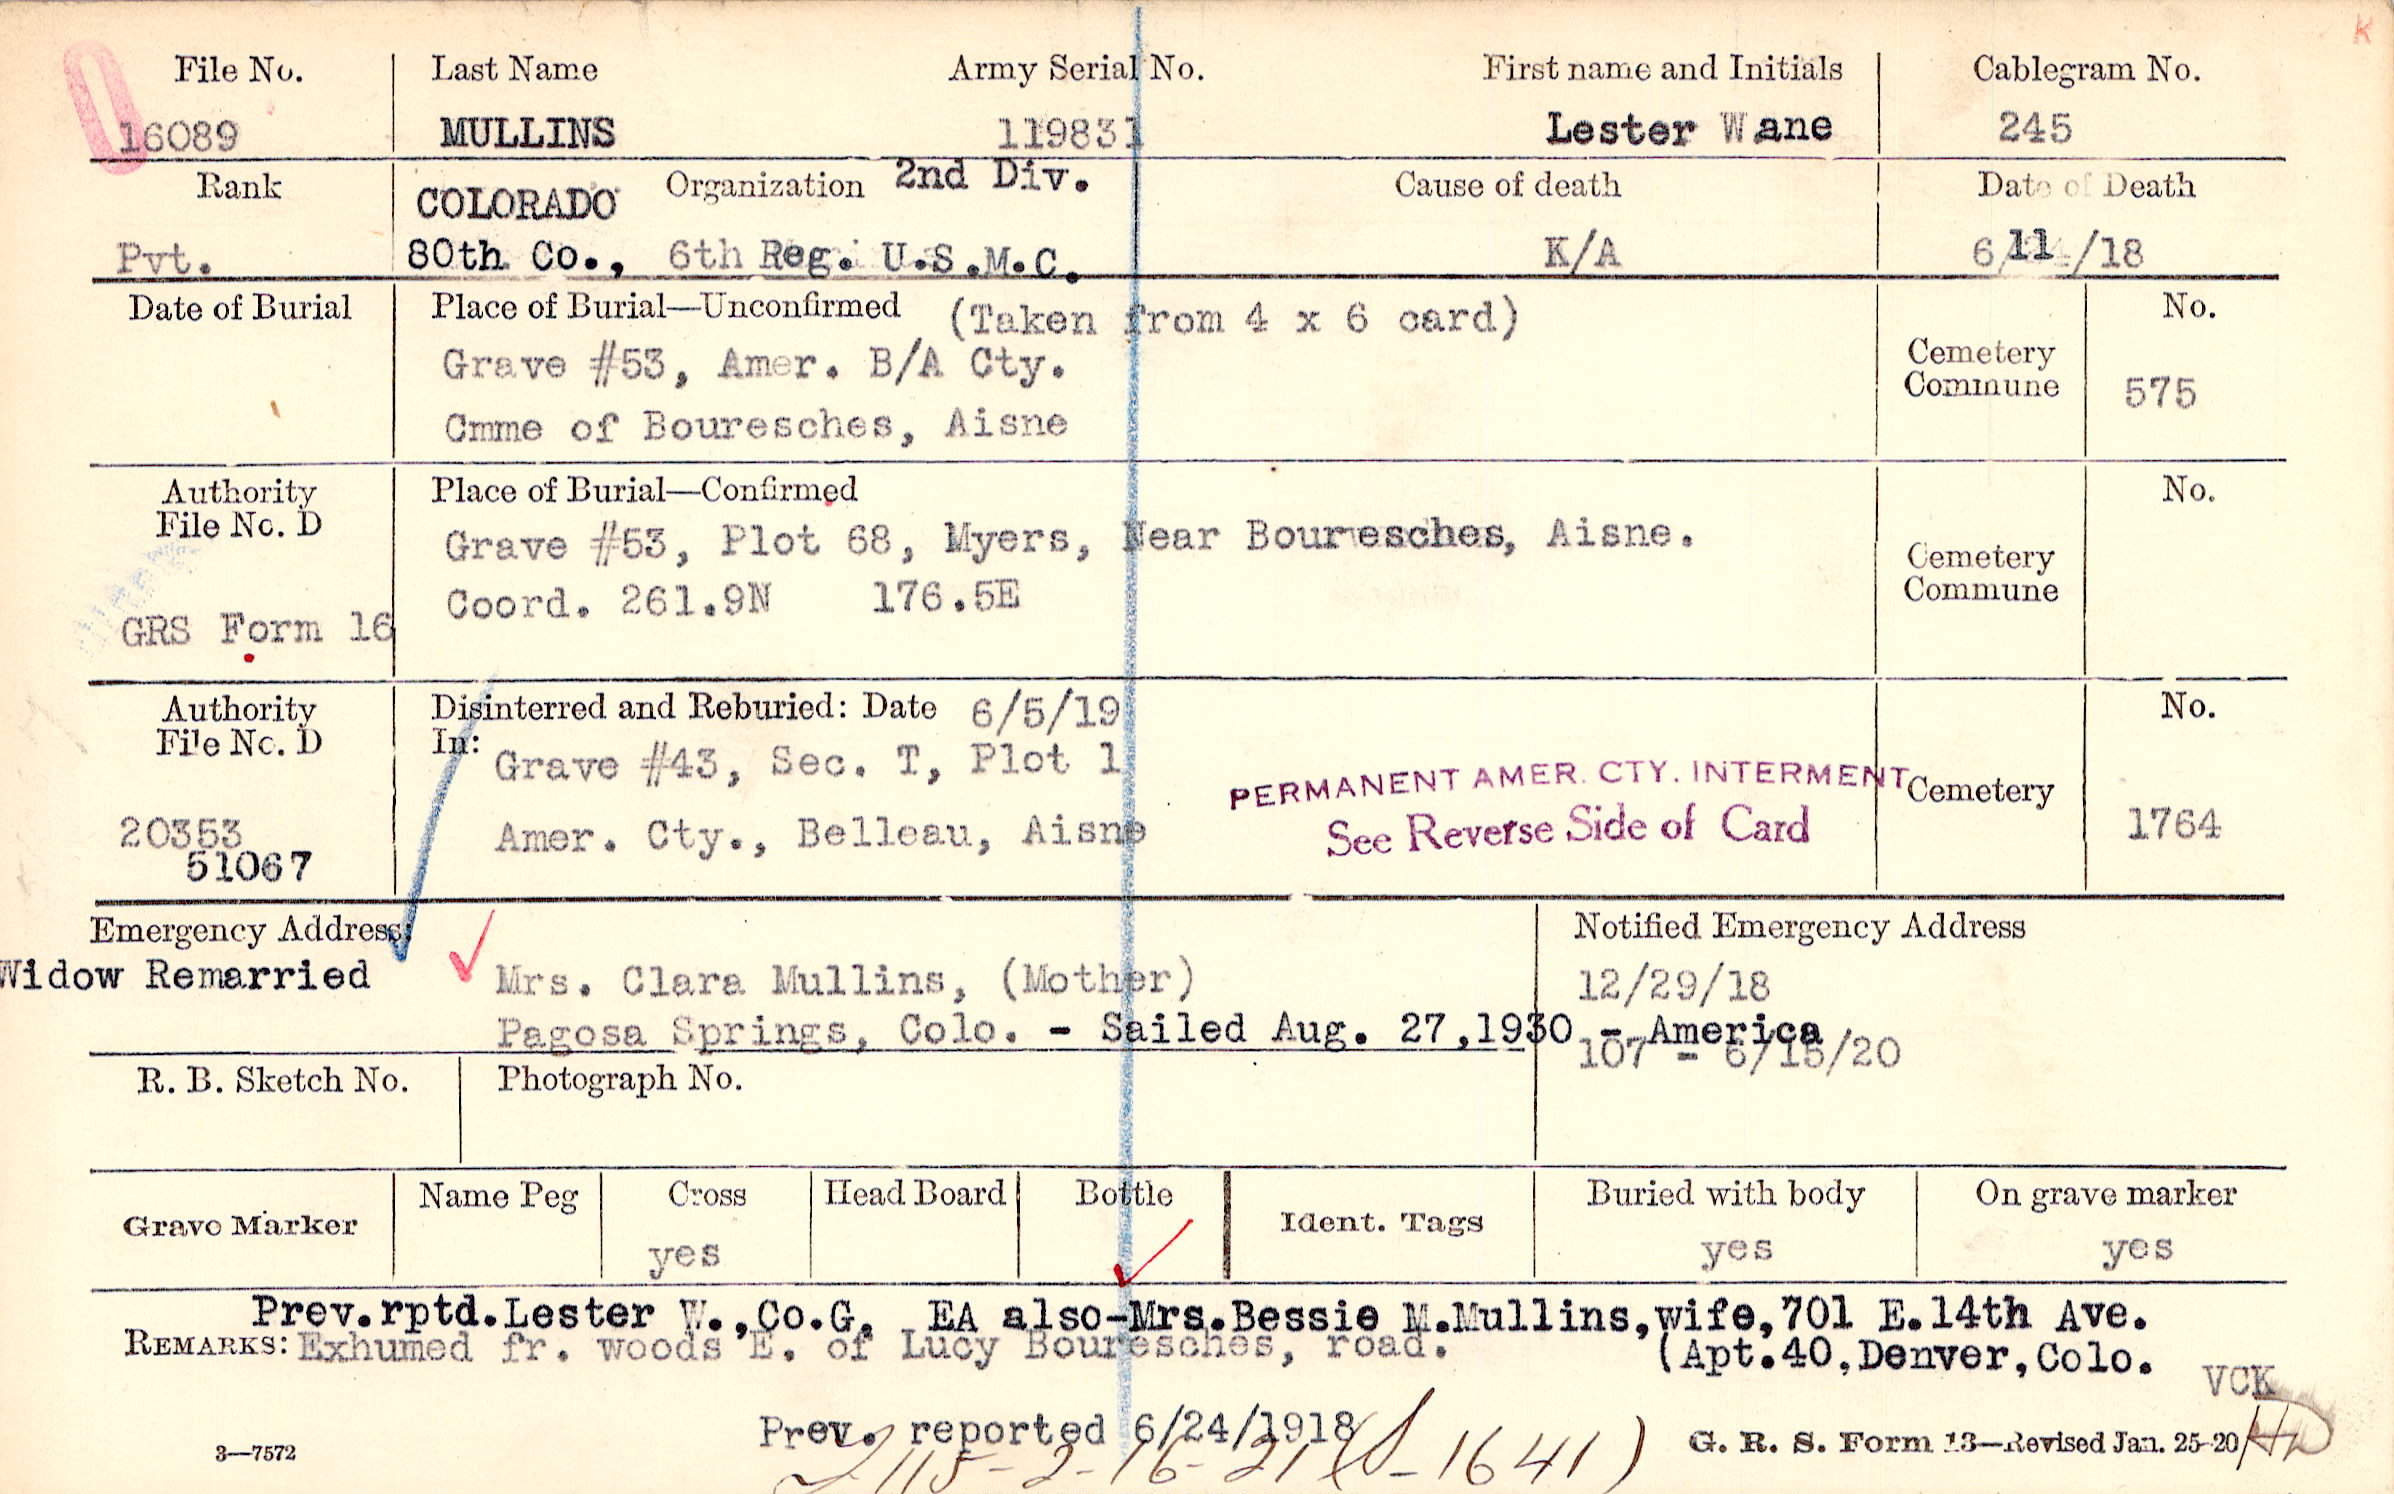 File No. Last Name Army Serial No. First name and Initials Cablegram No. K
16089 MULLINS 119831 Lester Wane 245
Rank COLORADO Organization 2nd Div. Cause of death Date of Death
Pvt. 80th Co., 6th Reg. U.S.M.C. K/A 6/11/18
Date of Burial Place of Burial—Unconfirmed (Taken from 4 x 6 card) No.
Grave #53, Amer. B/A Cty. Cemetery
Commune 575
Cmme of Bouresches, Aisne
Authority Place of Burial—Confirmed No.
File No. D
Grave #53, Plot 68, Myers, Near Bouresches, Aisne. Cemetery
Coord. 261.9N 176.5E Commune
GRS Form 16
Authority Disinterred and Reburied: Date 6/5/19 No.
File No. D In:
Grave #43, Sec. T, Plot 1
PERMANENT AMER. CTY. INTERMENT Cemetery
20353 Amer. Cty., Belleau, Aisne See Reverse Side of Card 1764
51067
Emergency Address: Notified Emergency Address
Widow Remarried Mrs. Clara Mullins, (Mother) 12/29/18
Pagosa Springs, Colo. - Sailed Aug. 27,1930 - America
107 - 6/15/20
R. B. Sketch No. Photograph No.
Grave Marker Name Peg Cross Head Board Bottle Ident. Tags Buried with body On grave marker
yes yes yes
Prev.rptd.Lester W.,Co.G, EA also-Mrs.Bessie M.Mullins,wife,701 E.14th Ave.
REMARKS: Exhumed fr. woods E. of Lucy Bouresches, road. (Apt.40,Denver,Colo.
VCK
Prev. reported 6/24/1918
3—7572 2115-2-16-21 (S-1641) G. R. S. Form 13—Revised Jan. 25-20